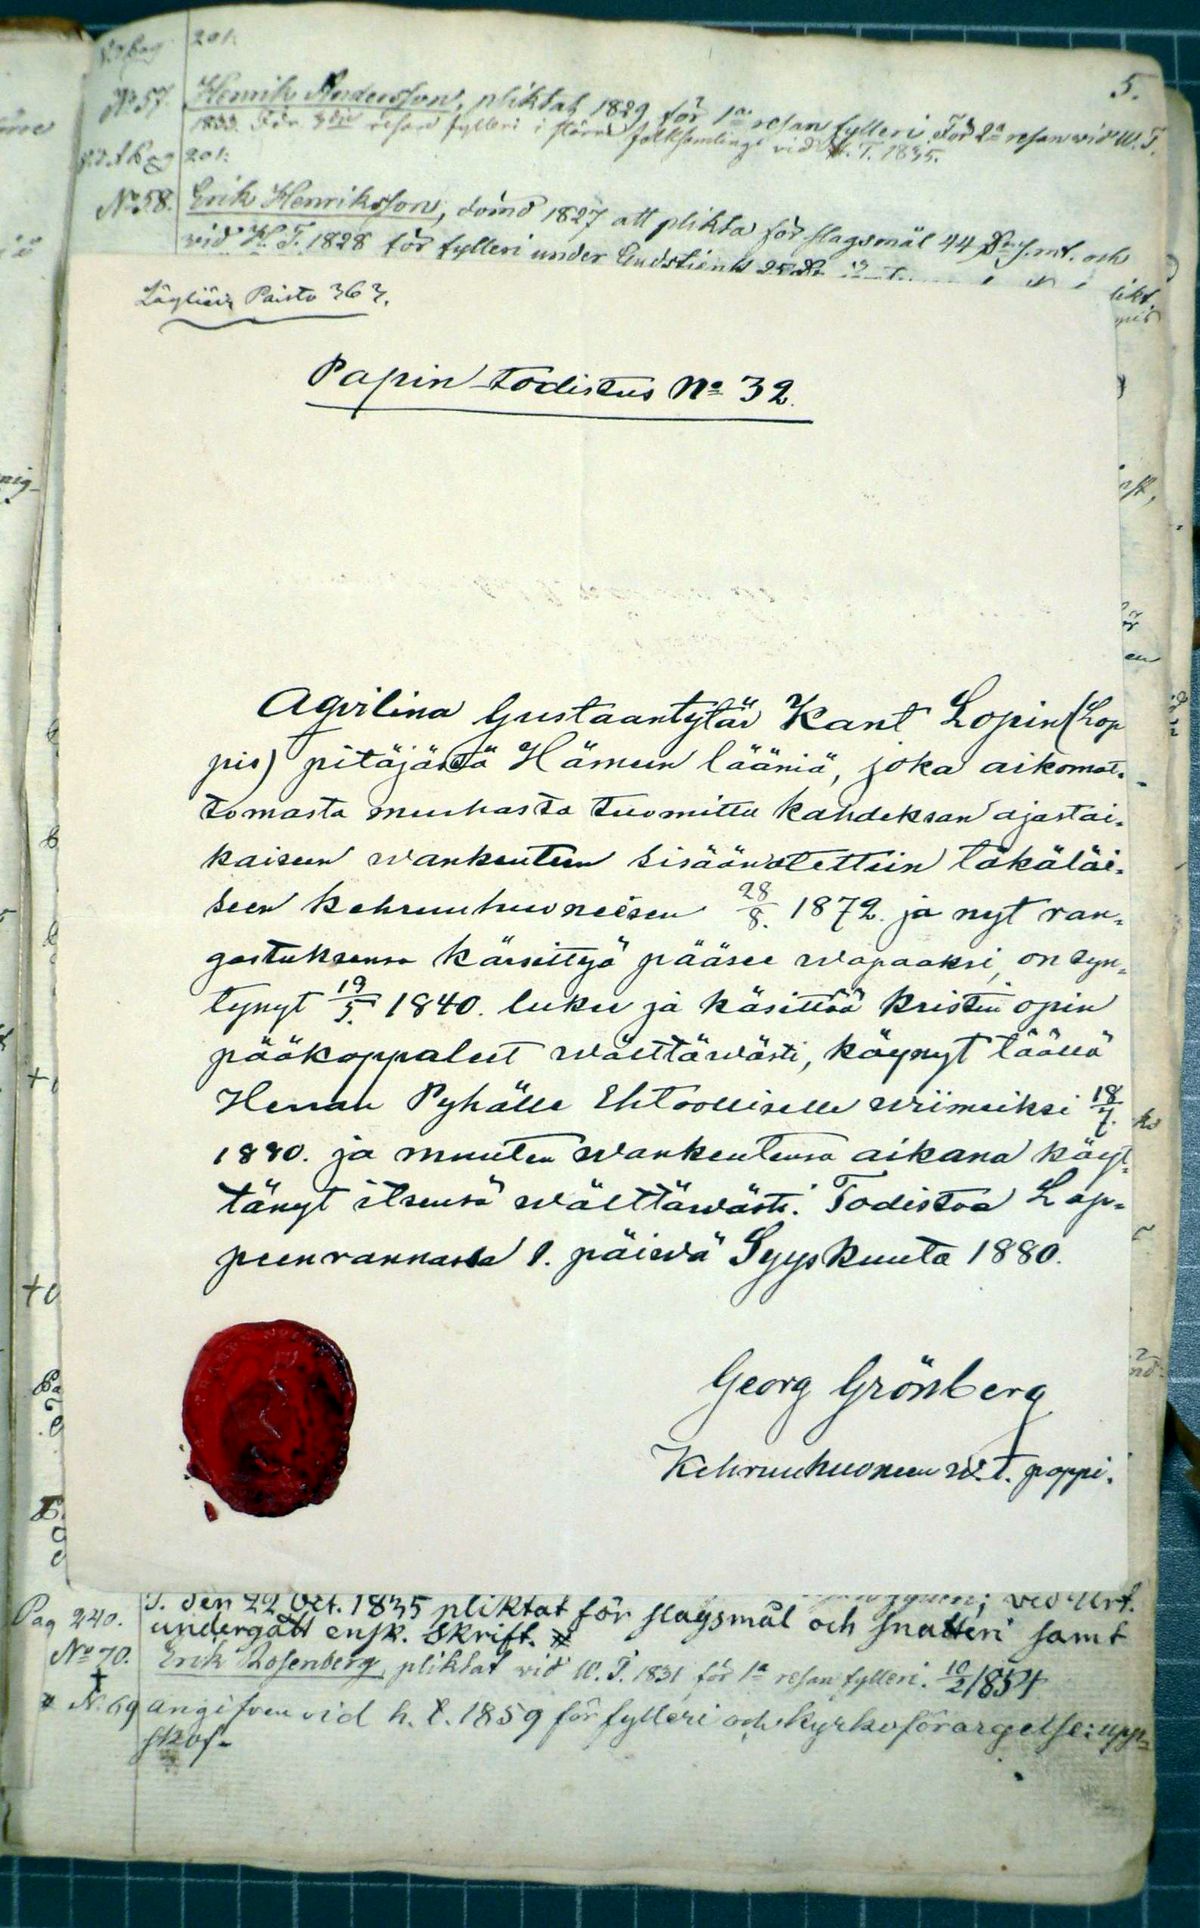 201.
5.
No 57. Henrik Andersson, pliktat 1829 för 1a resan fylleri. För 2a resan vid W. T.
1833. För 3die resan fylleri i större folksamling vid W. T. 1835.
201:
No 58. Erik Henriksson, dömd 1827 att plikta för slagsmål 44 s.mt. och
vid H. T. 1828 för fylleri under Gudstienst
Läyliäin Paisto 363.
Papin todistus No 32.
Aqvilina Gustaantytär Kant Lopin (Lop
pis) pitäjästä Hämeen lääniä, joka aikomat-
tomasta murhasta tuomittu kahdeksan ajastai-
kaiseen wankeuteen sisäänotettiin täkäläi-
seen kehruuhuoneesen 28/8. 1872. ja nyt ran-
gastuksensa kärsittyä pääsee wapaaksi, on syn-
tynyt 19/5. 1840. lukee ja käsittää kristin opin
pääkappaleet wälttäwästi, käynyt täällä
Herran Pyhälle Ehtoolliselle wiimeiksi 18/7.
1880. ja muuten wankeutensa aikana käyt-
tänyt itsensä wälttäwästi. Todistaa Lap-
peenrannassa 1. päiwä Syyskuuta 1880.
Georg Grönberg
Kehruuhuoneen w. t. pappi.
T. den 22 Oct. 1835 pliktat för slagsmål och snatteri samt
Pag 240. undergått ensk. Skrift.
No 70. Erik Rosenberg, pliktat vid W. T. 1831 för 1a resan fylleri. 10/2 1854
N. 69 angifven vid h. t. 1859 för fylleri och kyrkoförargelse: upp-
skof.